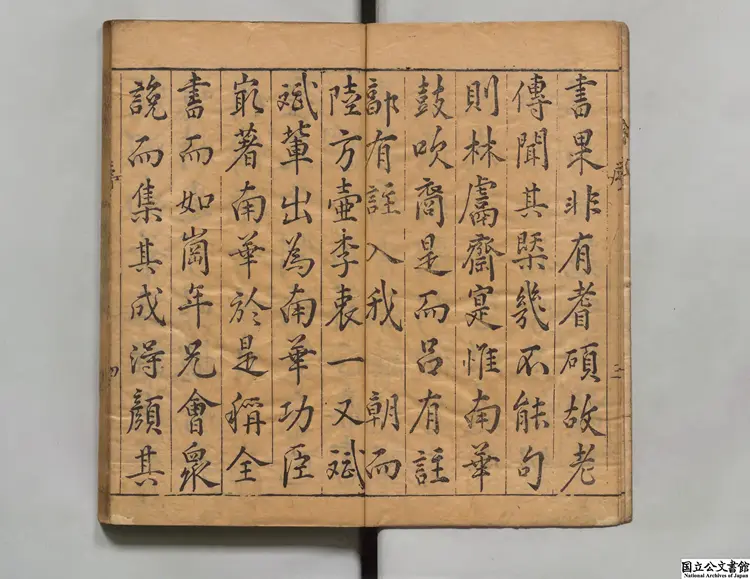 書果非有耆碩故老
傳聞其槩幾不能句
則林鬳齋寔惟南華
鼓吹裔是而呂有註
鄗有註入我　朝而
陸方壷李衷一又斌
斌軰出為南華功臣
㝡著南華於是稱全
書而如崗年兄會衆
說而集其成淂顏其
国立公文書館
National Archives of Japan